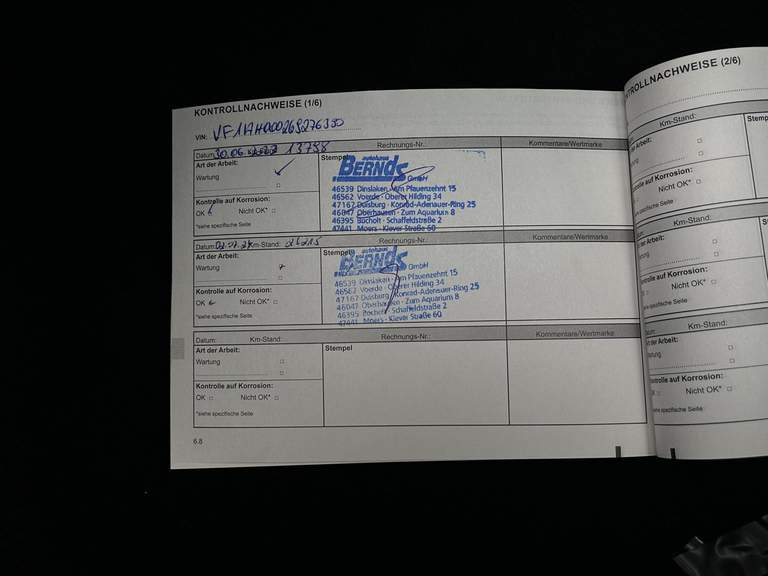 KONTROLLNACHWEISE (1/6)
VIN:
Datum: 30.06 13798 Rechnungs-Nr.: Kommentare/Wertmarke
Art der Arbeit:
Wartung
Kontrolle auf Korrosion:
OK Nicht OK*
*siehe spezifische Seite
Stempel
autohaus
BERNDS
GmbH
46539 Dinslaken · Am Pfauenzehnt 15
46562 Voerde · Oberer Hilding 34
47167 Duisburg · Konrad-Adenauer-Ring 25
46047 Oberhausen · Zum Aquarium 8
46395 Bocholt · Schaffeldstraße 2
47441 Moers · Klever Straße 60
Datum: Km-Stand: Rechnungs-Nr.: Kommentare/Wertmarke
Art der Arbeit:
Wartung
Kontrolle auf Korrosion:
OK Nicht OK*
*siehe spezifische Seite
Stempel
autohaus
BERNDS
GmbH
46539 Dinslaken · Am Pfauenzehnt 15
46562 Voerde · Oberer Hilding 34
47167 Duisburg · Konrad-Adenauer-Ring 25
46047 Oberhausen · Zum Aquarium 8
46395 Bocholt · Schaffeldstraße 2
47441 Moers · Klever Straße 60
Datum: Km-Stand: Rechnungs-Nr.: Kommentare/Wertmarke
Art der Arbeit:
Wartung
Kontrolle auf Korrosion:
OK Nicht OK*
*siehe spezifische Seite
Stempel
6.8
TROLLNACHWEISE (2/6)
Km-Stand:
Art der Arbeit:
Wartung
Kontrolle auf Korrosion:
Nicht OK*
siehe spezifische Seite
Km-Stand:
Art der Arbeit:
Wartung
Kontrolle auf Korrosion:
Nicht OK*
siehe spezifische Seite
Datum: Km-Stand:
Art der Arbeit:
Wartung
Kontrolle auf Korrosion:
OK Nicht OK*
siehe spezifische Seite